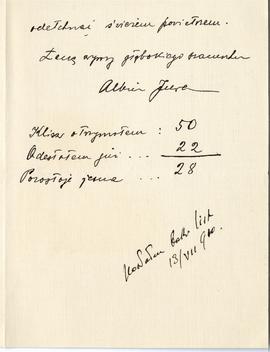 odetchnąć świeżem powietrzem.
Łączę wyrazy głębokiego szacunku
Albin Jura
Klisz otrzymałem : 50
Odesłałem już ... 22
Pozostaje jeszcze ... 28
list
13/VII 910